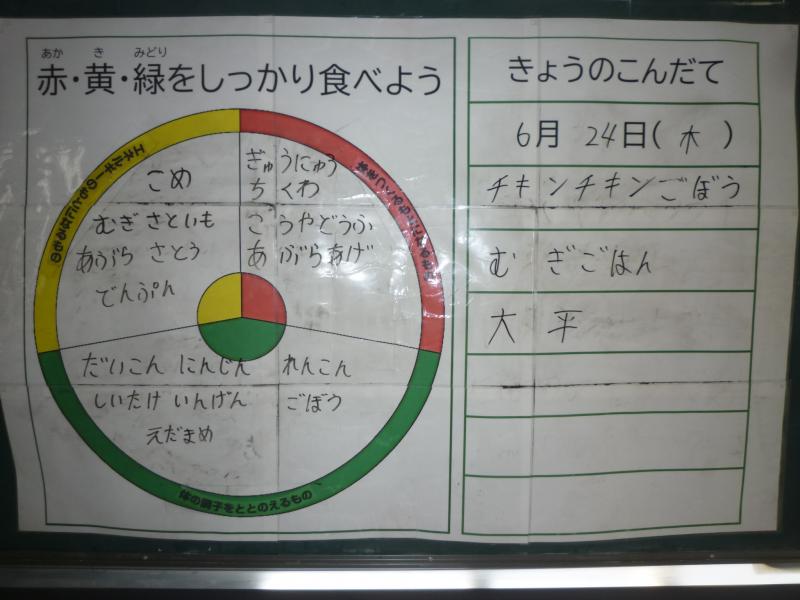 あか き みどり
赤・黄・緑をしっかり食べよう
エネルギーのもとになるもの
体をつくるもとになるもの
こめ
むぎ さといも
あぶら さとう
でんぷん
ぎゅうにゅう
ちくわ
こうやどうふ
あぶらあげ
だいこん にんじん れんこん
しいたけ いんげん ごぼう
えだまめ
体の調子をととのえるもの
きょうのこんだて
6月 24日(木)
チキンチキンごぼう
むぎごはん
大平